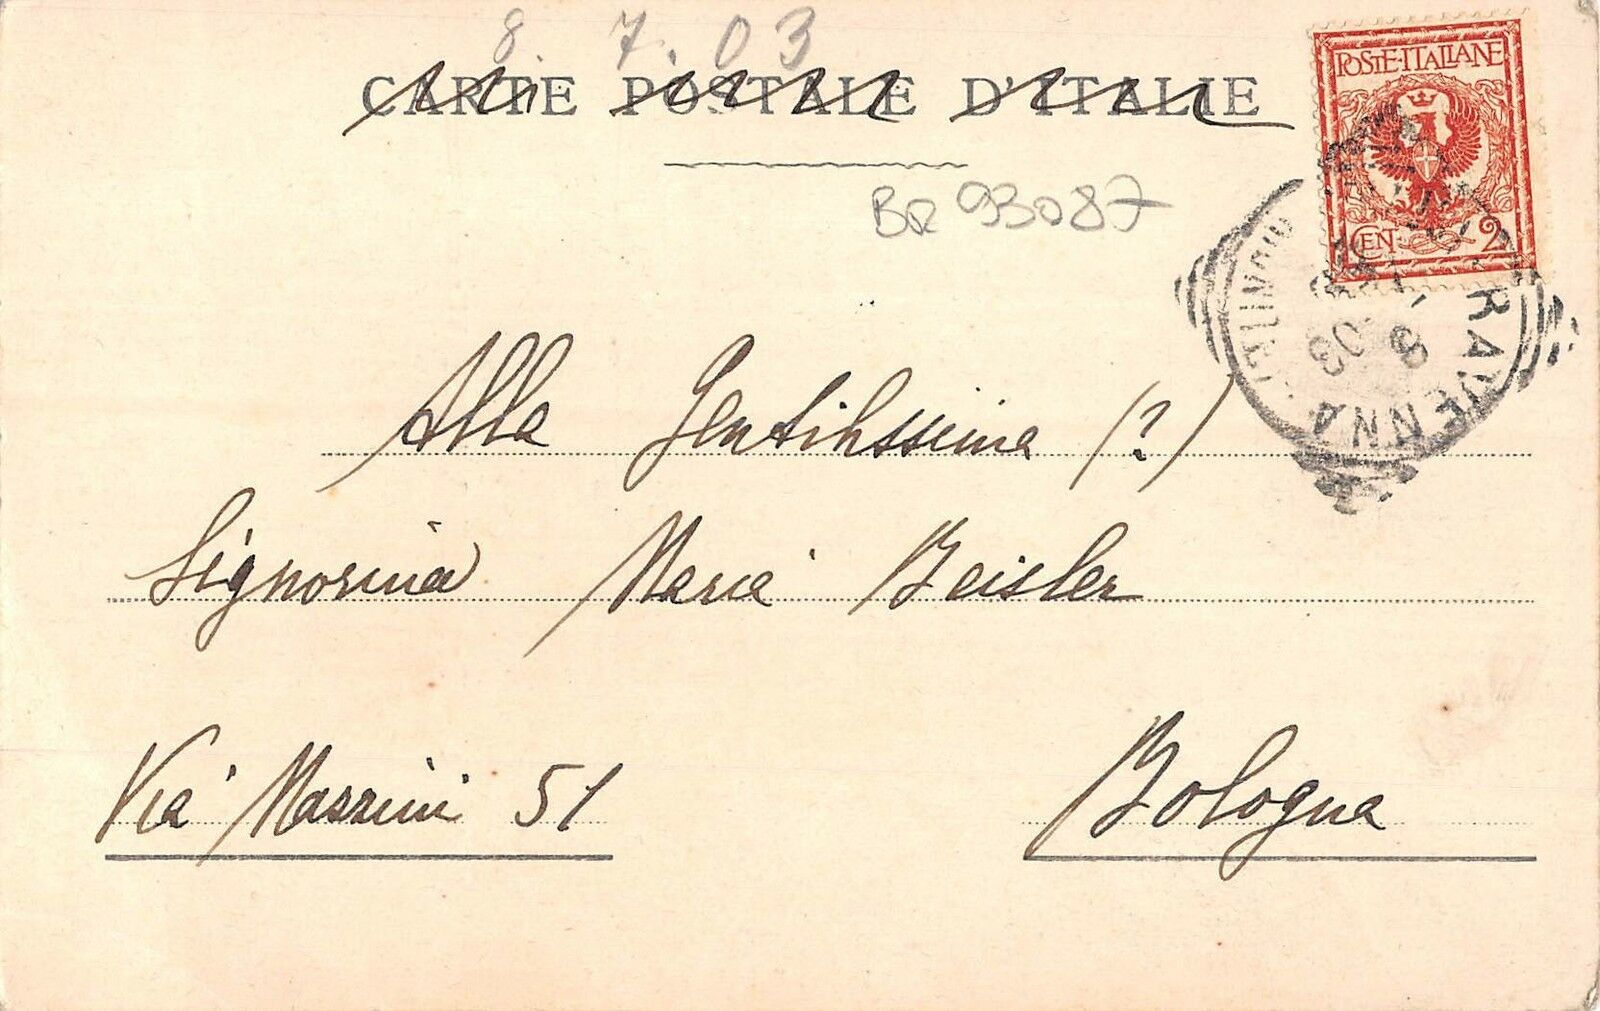 8. 7. 03
CARTE POSTALE D'ITALIE
POSTE·ITALIANE
CEN. 2
BR 93087
RAVENNA
8
03
Alla Gentilissima (?)
Signorina Maria Beisler
Via Mazzini 51
Bologna